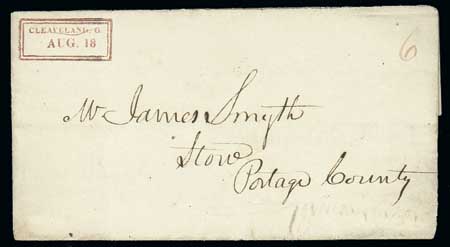 CLEAVELAND. O.
AUG. 18
6
Mr James Smyth
Stow
Portage County